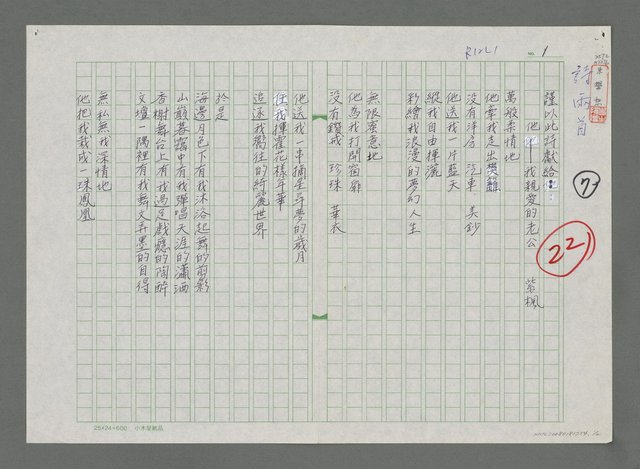 R12L1
No. 1
詩兩首
7
22
謹以此詩獻給:
他——我親愛的老公
紫楓
萬般柔情地
他牽我走出樊籬
沒有洋房 汽車 美鈔
他送我一片藍天
縱我自由揮灑
彩繪我浪漫的夢幻人生
無限蜜意地
他為我打開窗扉
沒有鑽戒 珍珠 華衣
他送我一串摘星尋夢的歲月
任我揮霍花樣年華
追逐我嚮往的綺麗世界
於是
海邊月色下有我沐浴起舞的剪影
山巔暮靄中有我彈唱天涯的瀟洒
香榭舞台上有我過足戲癮的陶醉
文壇一隅裡有我舞文弄墨的自得
無私無我深情地
他把我栽成一珠鳳凰
25×24=600 小木屋紙品